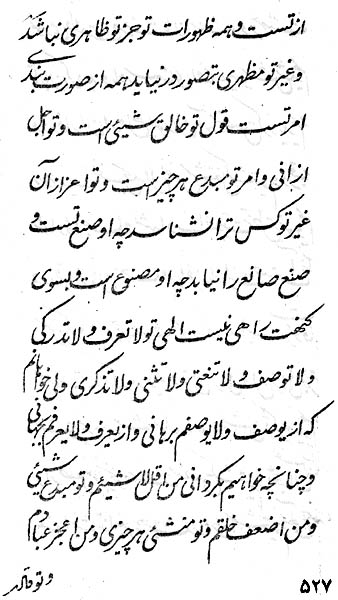 از تست و همه ظهورات تو جز تو ظاهری نباشد
و غیر تو مظهری بتصور در نیاید همه از صورت بندی
امر تست قول تو خالق شیئی است و تو اجل
از انی و امر تو مبدع هر چیز است و تو اعز از آن
غیر تو کس ترا نشناسد چه او صنع تست و
صنع صانع را نیابد چه او مصنوع است و بسوی
کنهت راهی نیست الهی تو لا تعرف و لا تدرکی
و لا توصف و لا تنعتی و لا تثنی و لا تذکری ولی
که از یوصف و لا یوصفم برهانی و از یعرف و لا یعرفم
و چنانچه خواهیم بگردانی من اقل لا شیئم و تو مبدع شیئی
و من اضعف خلقم و تو منشئ هر چیزی و من اعجز عبادم
و تو قادر
۵۲۷